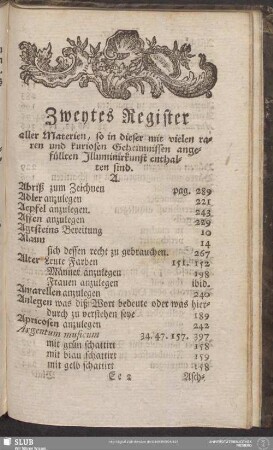 Zweytes Register
aller Materien, so in dieser mit vielen ra-
ren und kuriosen Geheimnissen ange-
fülleten Illuminirkunst enthal-
ten sind.
A.
Abriß zum Zeichnen pag. 289
Adler anzulegen 221
Aepfel anzulegen. 243
Affen anzulegen 229
Agtsteins Bereitung 10
Alaun 14
sich dessen recht zu gebrauchen. 267
Alter Leute Farben 151. 152
Männer anzulegen 198
Frauen anzulegen ibid.
Amarellen anzulegen 240
Anlegen was diß Wort bedeute oder was hier-
durch zu verstehen seye 189
Apricosen anzulegen 242
Argentum musicum 34. 47. 157. 397
mit grün schattirt 158
mit blau schattirt 159
mit gelb schattirt 158
E e 2 Asch-
SLUB